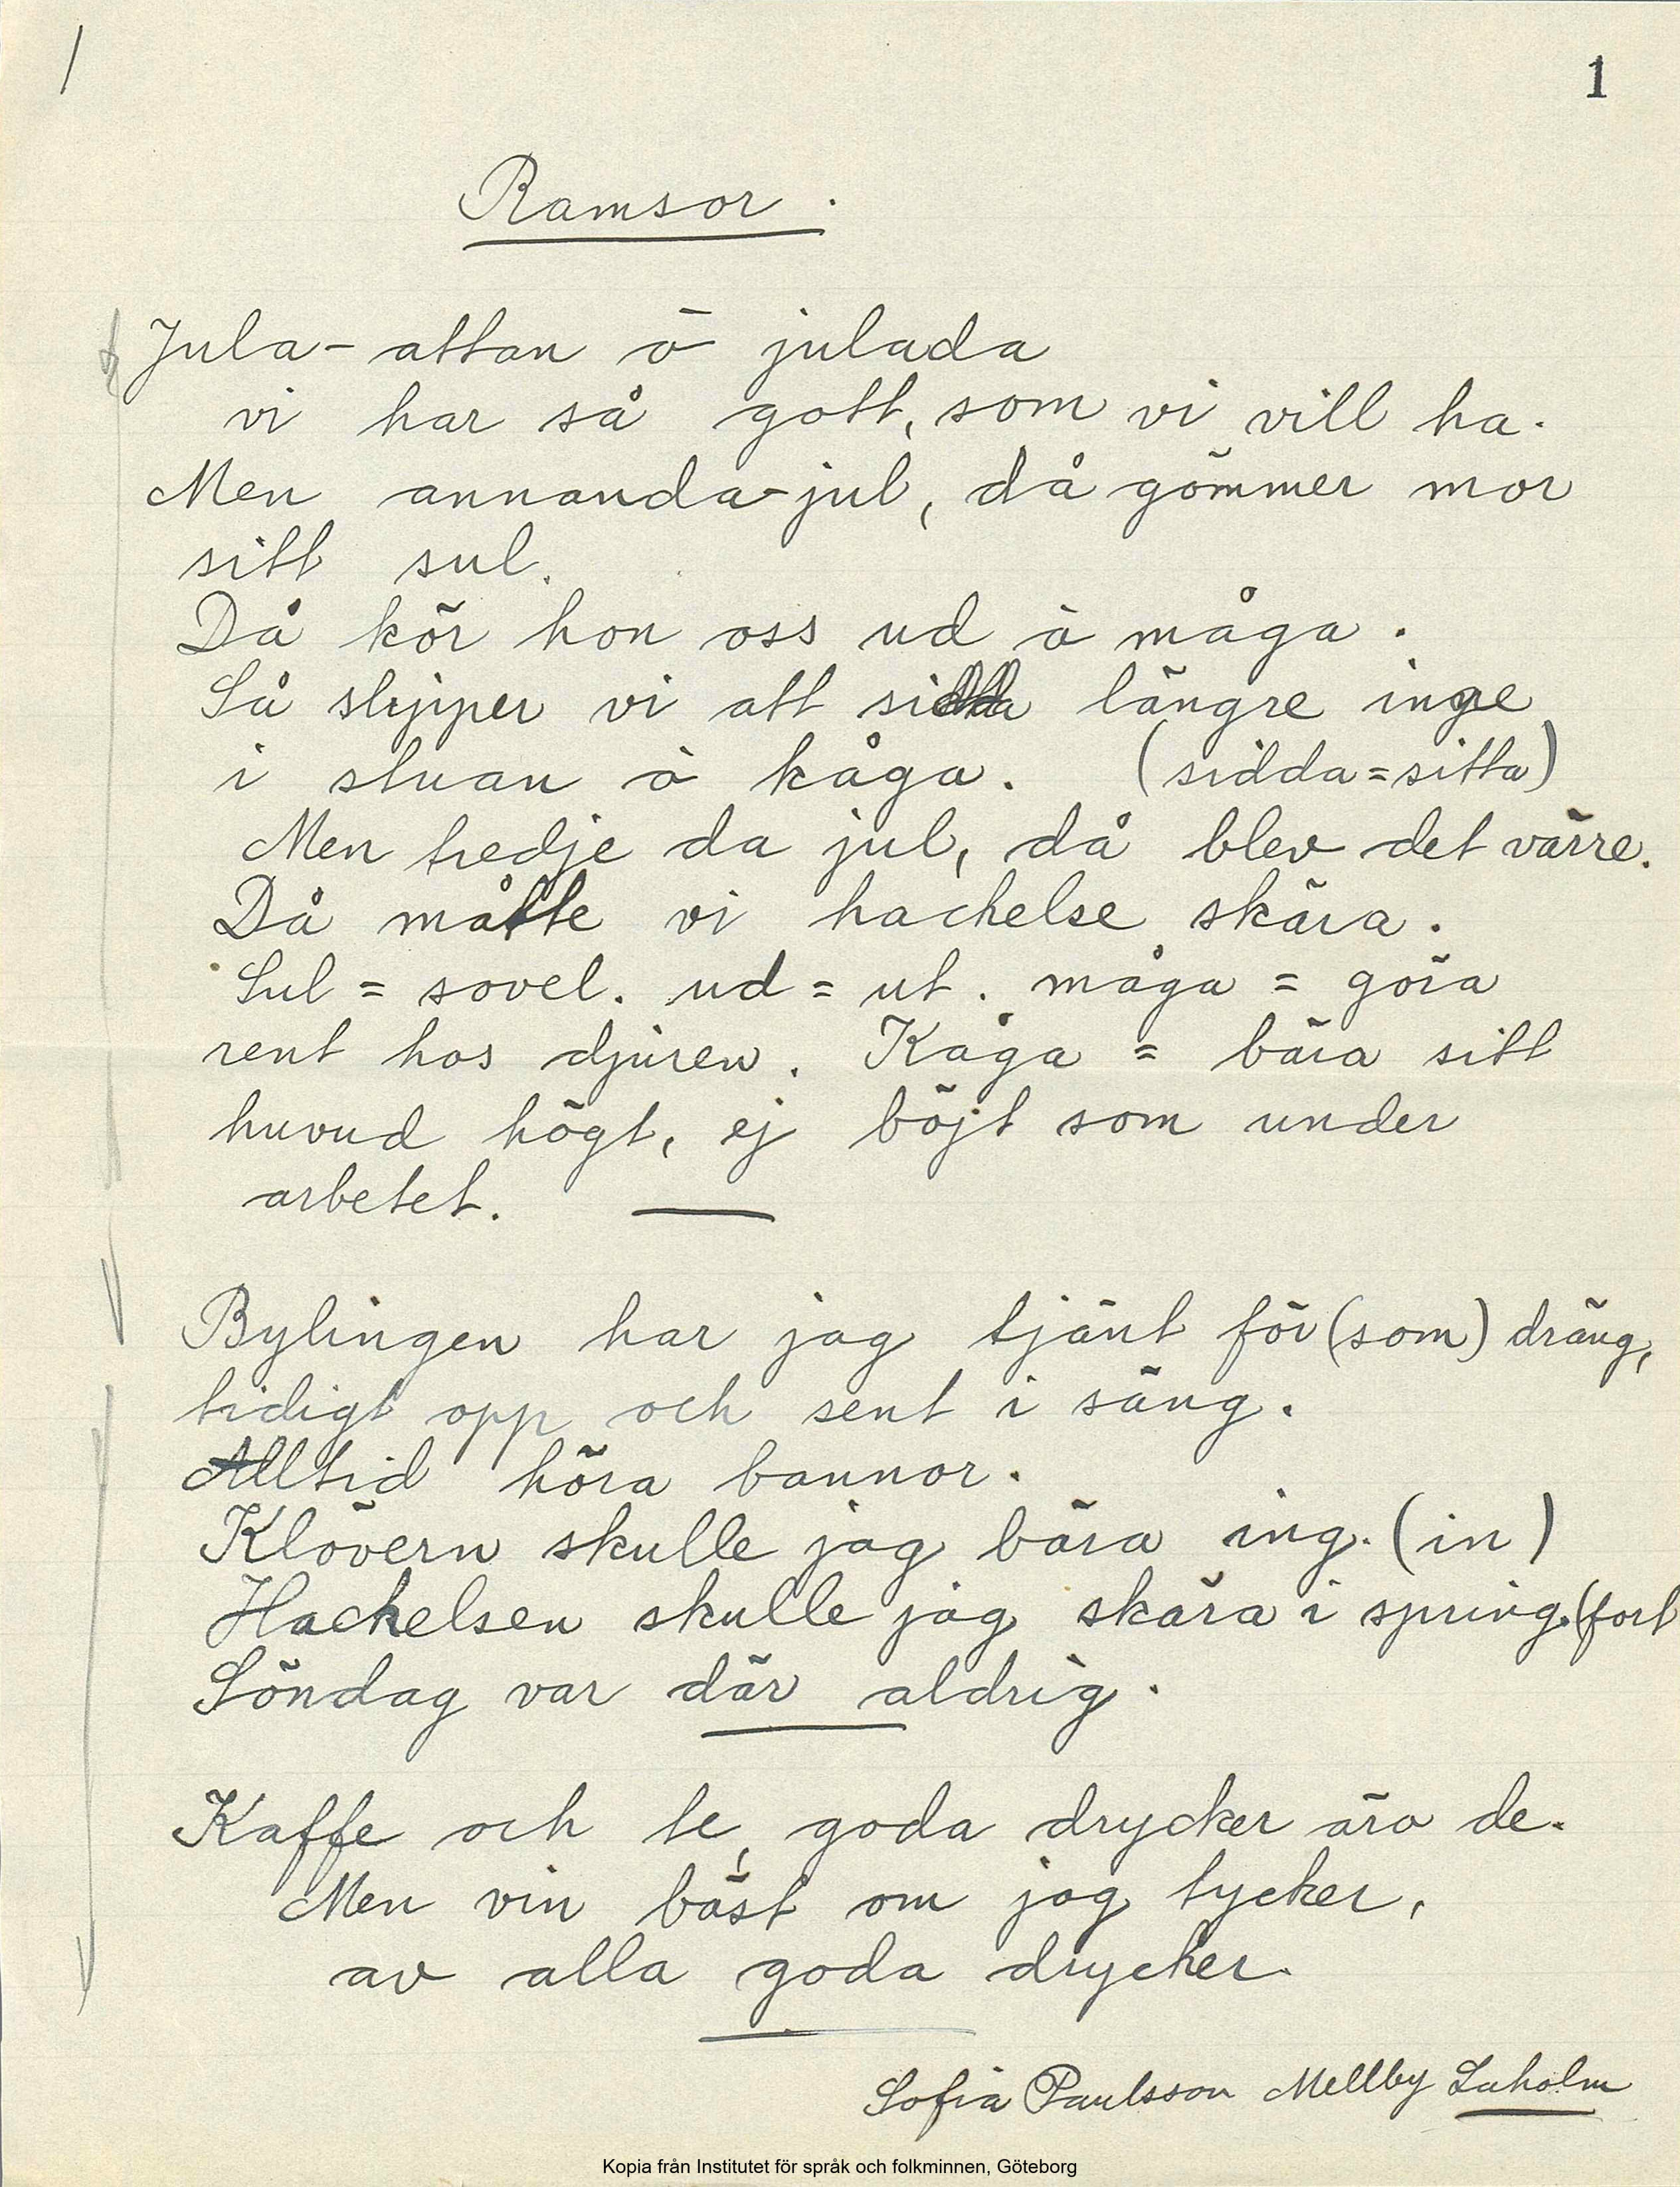 1
Ramsor.
Jula-attan ō julada
vi har så gott, som vi vill ha.
Men annanda-jul, då gömmer mor
sitt sul.
Då kör hon oss ud à måga.
Så slipper vi att sidda längre inge
i stuan ò kåga. (sidda=sitta)
Men tredje da jul, då blev det värre.
Då måtte vi hackelse skära.
Sul = sovel. ud = ut. måga = göra
rent hos djuren. Kåga = bära sitt
huvud högt, ej böjt som under
arbetet.
Bylingen har jag tjänt för (som) dräng,
tidigt opp och sent i säng.
Alltid höra bannor.
Klövern skulle jag bära ing. (in)
Hackelsen skulle jag skära i spring. (fort
Söndag var där aldrig.
Kaffe och te, goda drycker äro de.
Men vin bäst om jag tycker,
av alla goda drycker.
Sofia Paulsson Mellby Laholm
Kopia från Institutet för språk och folkminnen, Göteborg